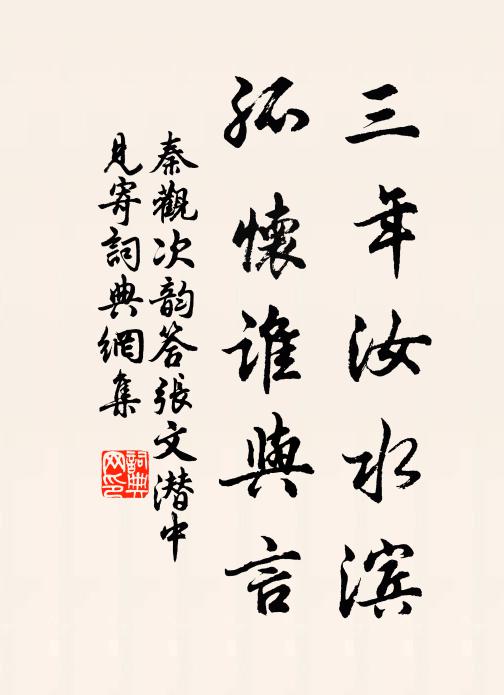 三年汝水滨
孤懷誰與言
秦觀次韵答張文潜中
見寄詞典網集
詞典网印